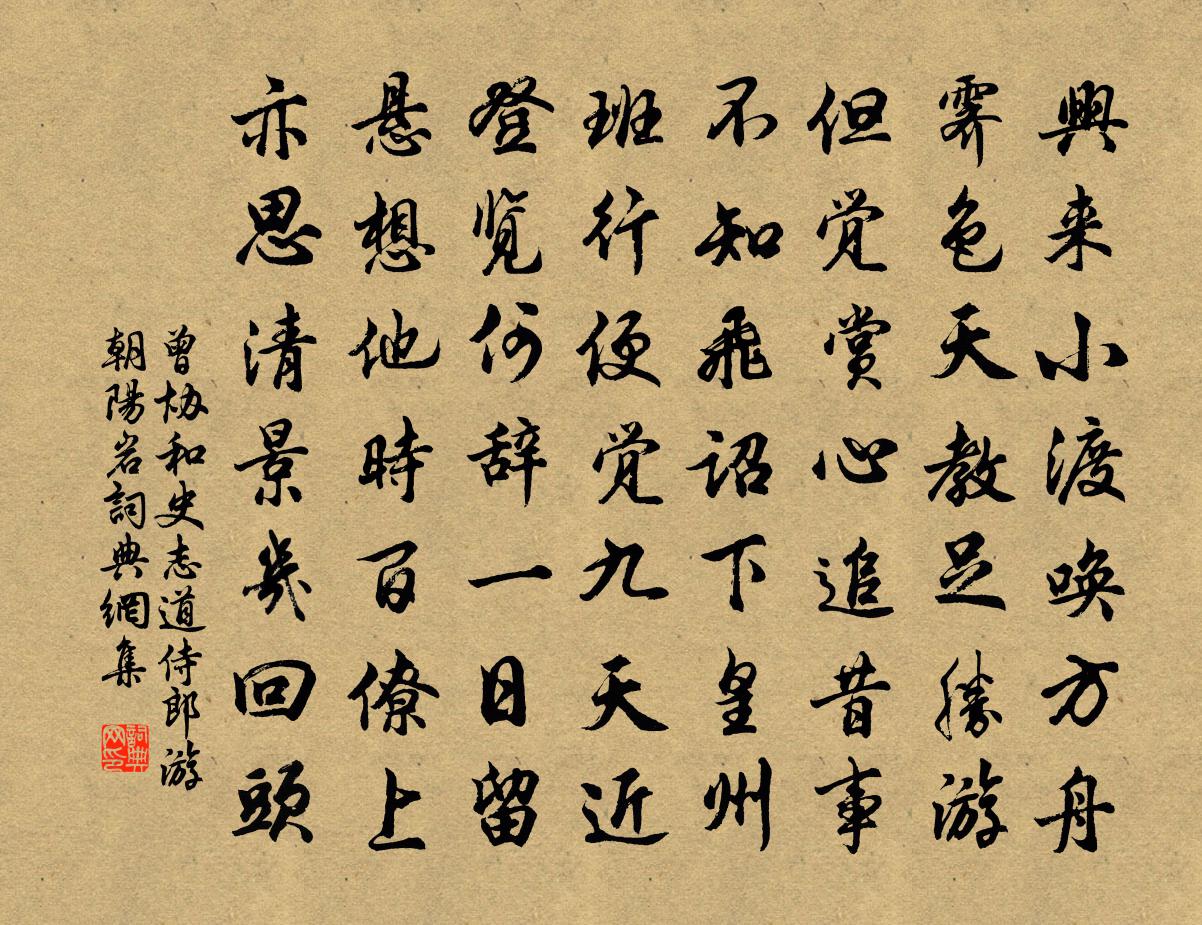 興来小渡唤方舟
霽色天教足勝游
但觉赏心追昔事
不知飛诏下皇州
班行便觉九天近
登览何辞一日留
悬想他時百僚上
亦思清景幾回頭
曾协和史志道侍郎游
朝陽岩詞典網集
詞典网印